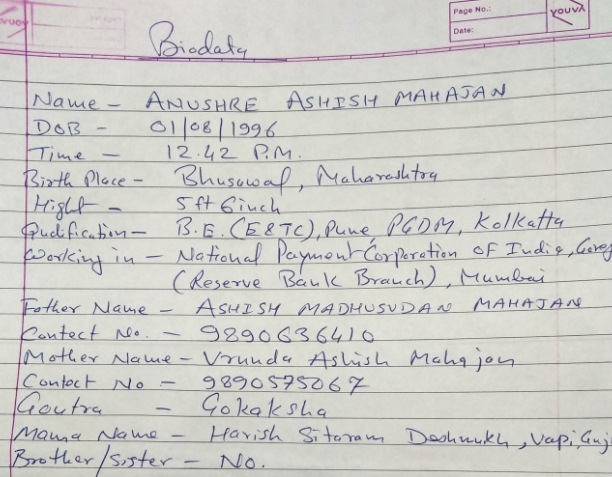 Page No.:
Date:
YOUVA
Biodata
Name - ANUSHRE ASHISH MAHAJAN
DOB - 01/08/1996
Time - 12.42 P.M.
Birth Place - Bhusawal, Maharashtra
Hight - 5ft 6inch
Qudification - B.E. (E&TC), Pune PGDM, Kolkatta
Working in - National Payment Corporation of India, Goreg
(Reserve Bank Branch), Mumbai
Father Name - ASHISH MADHUSUDAN MAHAJAN
Contect No. - 9890636410
Mother Name - Vrunda Ashish Mahajan
Contact No - 9890575067
Goutra - Gokaksha
Mama Name - Harish Sitaram Deshmukh, Vapi, Guj
Brother/Sister - No.